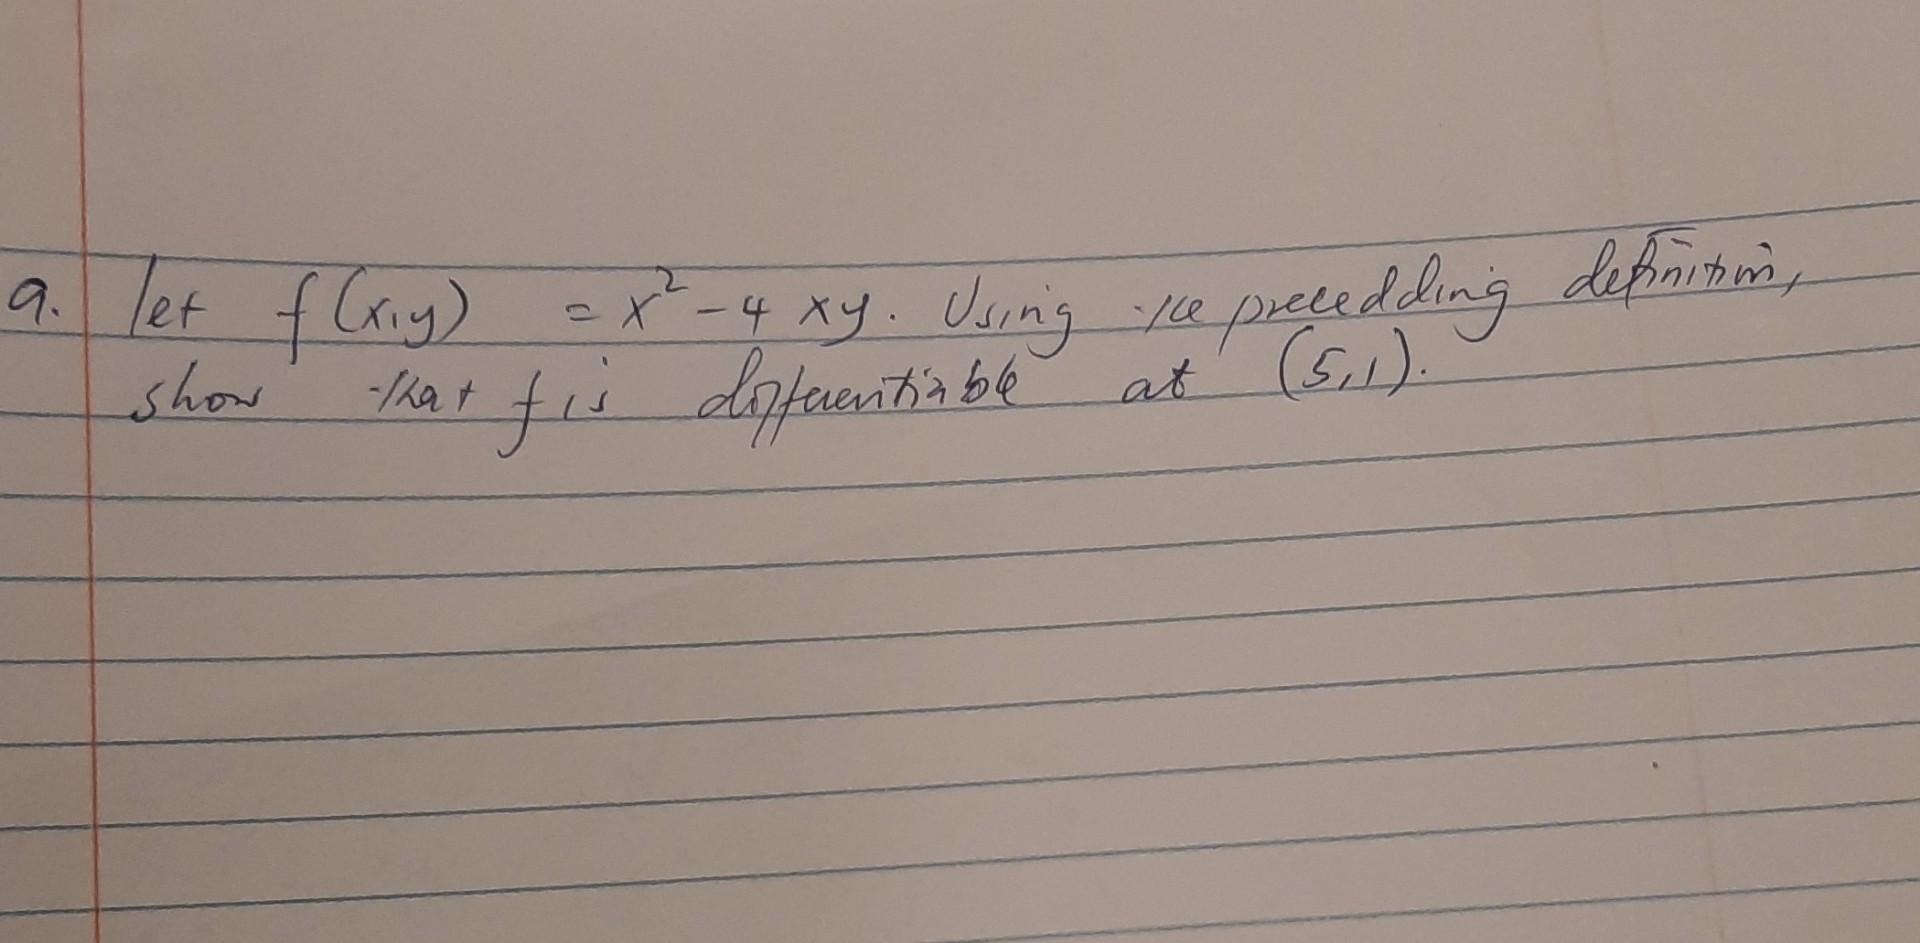 9. let f(x,y) = x² - 4xy. Using the precedding definition,
show that f is differentiable at (5,1).